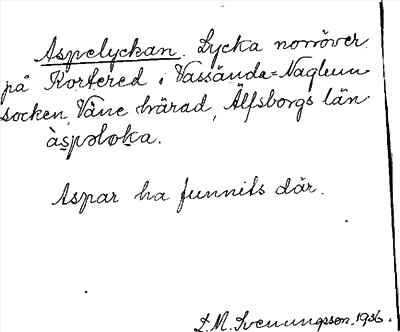 Aspelyckan. Lycka norröver
på Kortered i Vassända-Naglum
socken, Väne härad, Älfsborgs län.
àspəloka.
Aspar ha funnits där.
L.M. Svenungsson. 1936.